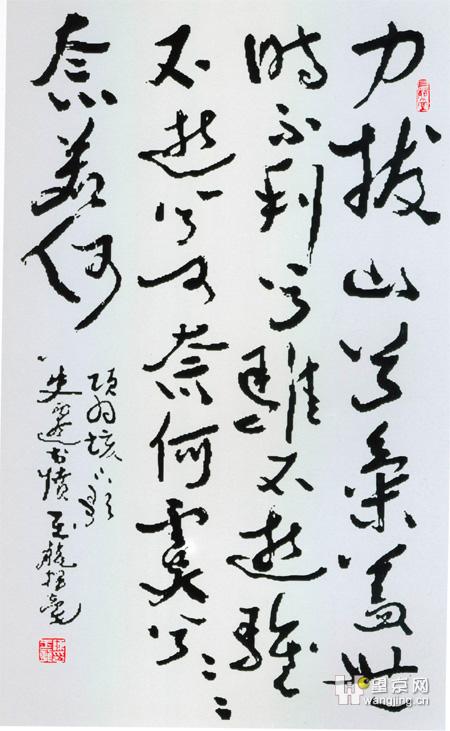 力拔山兮氣蓋世
時不利兮騅不逝騅
不逝兮可奈何虞兮〻〻
奈若何
項羽垓下歌
史遷書憤 揮毫
望京网
wangjing.cn